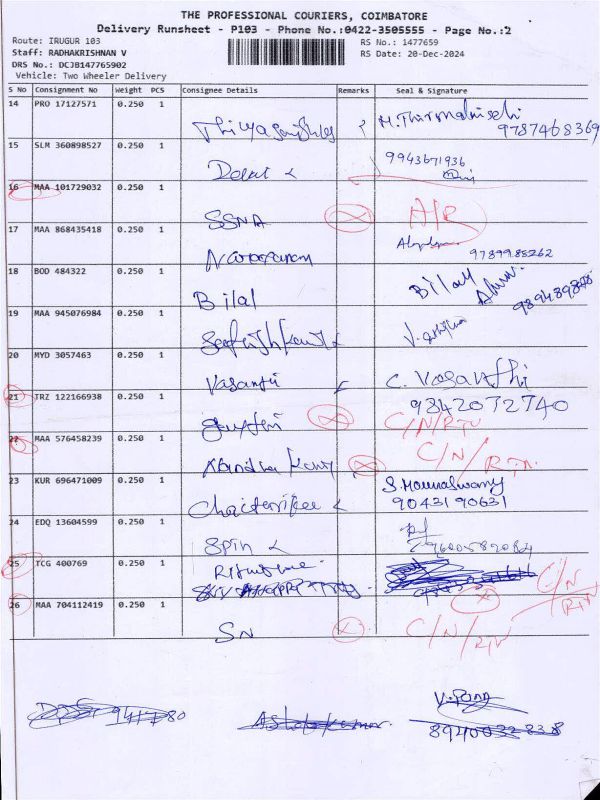 THE PROFESSIONAL COURIERS, COIMBATORE
Delivery Runsheet - P103 - Phone No.:0422-3505555 - Page No.:2
Route: IRUGUR 103
RS No.: 1477659
Staff: RADHAKRISHNAN V
RS Date: 20-Dec-2024
DRS No.: DCJB147765902
Vehicle: Two Wheeler Delivery
S No Consignment No Weight PCS Consignee Details Remarks Seal & Signature
14 PRO 17127571 0.250 1
9787468369
15 SLM 360898527 0.250 1
9943671936
16 MAA 101729032 0.250 1
SSNA A/R
17 MAA 868435418 0.250 1
Narayanan 9789985262
18 BOD 484322 0.250 1
Bilal Bilal
19 MAA 945076984 0.250 1
20 MYD 3057463 0.250 1
Vasanthi C. Vasanthi
21 TRZ 122166938 0.250 1 9842072740
C/N/RTN
22 MAA 576458239 0.250 1 C/N/RTN
23 KUR 696471009 0.250 1
9043190631
24 EDQ 13604599 0.250 1
Spin
25 TCG 400769 0.250 1 C/N/RTN
26 MAA 704112419 0.250 1
SN C/N/RTN